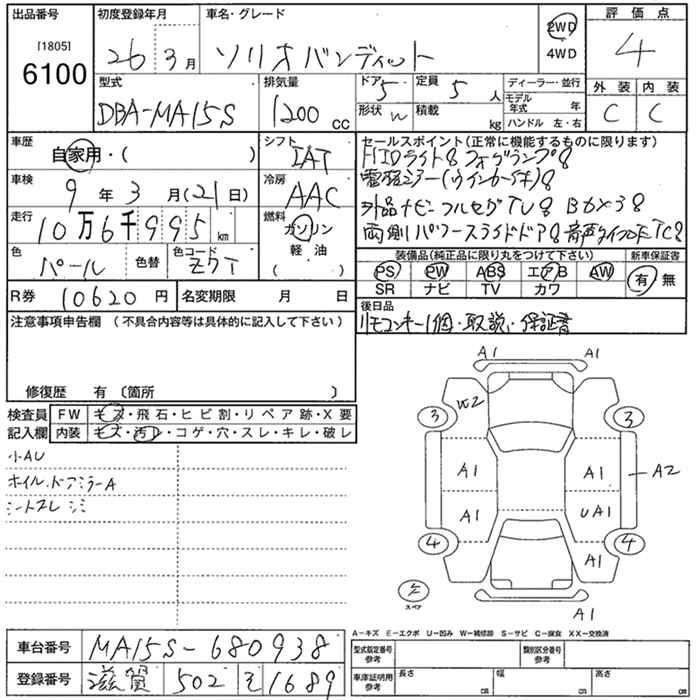 出品番号 初度登録年月 車名・グレード 2WD 4WD 評価点
[1805]
6100 26年 3月 ソリオバンディット 4
型式 排気量 ドア 5 定員 5人 ディーラー・並行 外装 内装
DBA-MA15S 1200cc 形状 W 積載 kg モデル年式 年 C C
ハンドル 左・右
車歴 自家用・( ) シフト IAT セールスポイント(正常に機能するものに限ります)
HIDライト&フォグランプ&
車検 9年 3月(21日) 冷房 AAC 電格ミラー(ウインカー付)&
外品ナビ フルセグTV& Bカメラ&
走行 10万6千995km 燃料 ガソリン 両側パワースライドドア&
軽油
( )
色 パール 色替 色コード Z7T 装備品(純正品に限り丸をつけて下さい) 新車保証書
PS PW ABS エアB AW 有・無
R券 10620円 名変期限 月 日 SR ナビ TV カワ
注意事項申告欄(不具合内容等は具体的に記入して下さい) 後日品
リモコンキー1個・取説・保証書
修復歴 有 〔箇所 〕
検査員 FW キズ・飛石・ヒビ割・リペア跡・X要
記入欄 内装 キズ・汚レ・コゲ・穴・スレ・キレ・破レ
小AU
ホイル、ドアミラーA
シートスレ シミ
A1 A1
W2
3 3
A1 A1 A2
A1 UA1
4 4
A1
スペア
A1
A−キズ E−エクボ U−凹み W−補修跡 S−サビ C−腐食 XX−交換済
車台番号 MA15S-680938 型式指定番号 参考 類別区分番号 参考
登録番号 滋賀 502 そ 1689 車庫証明用 参考 長さ cm 幅 cm 高さ cm